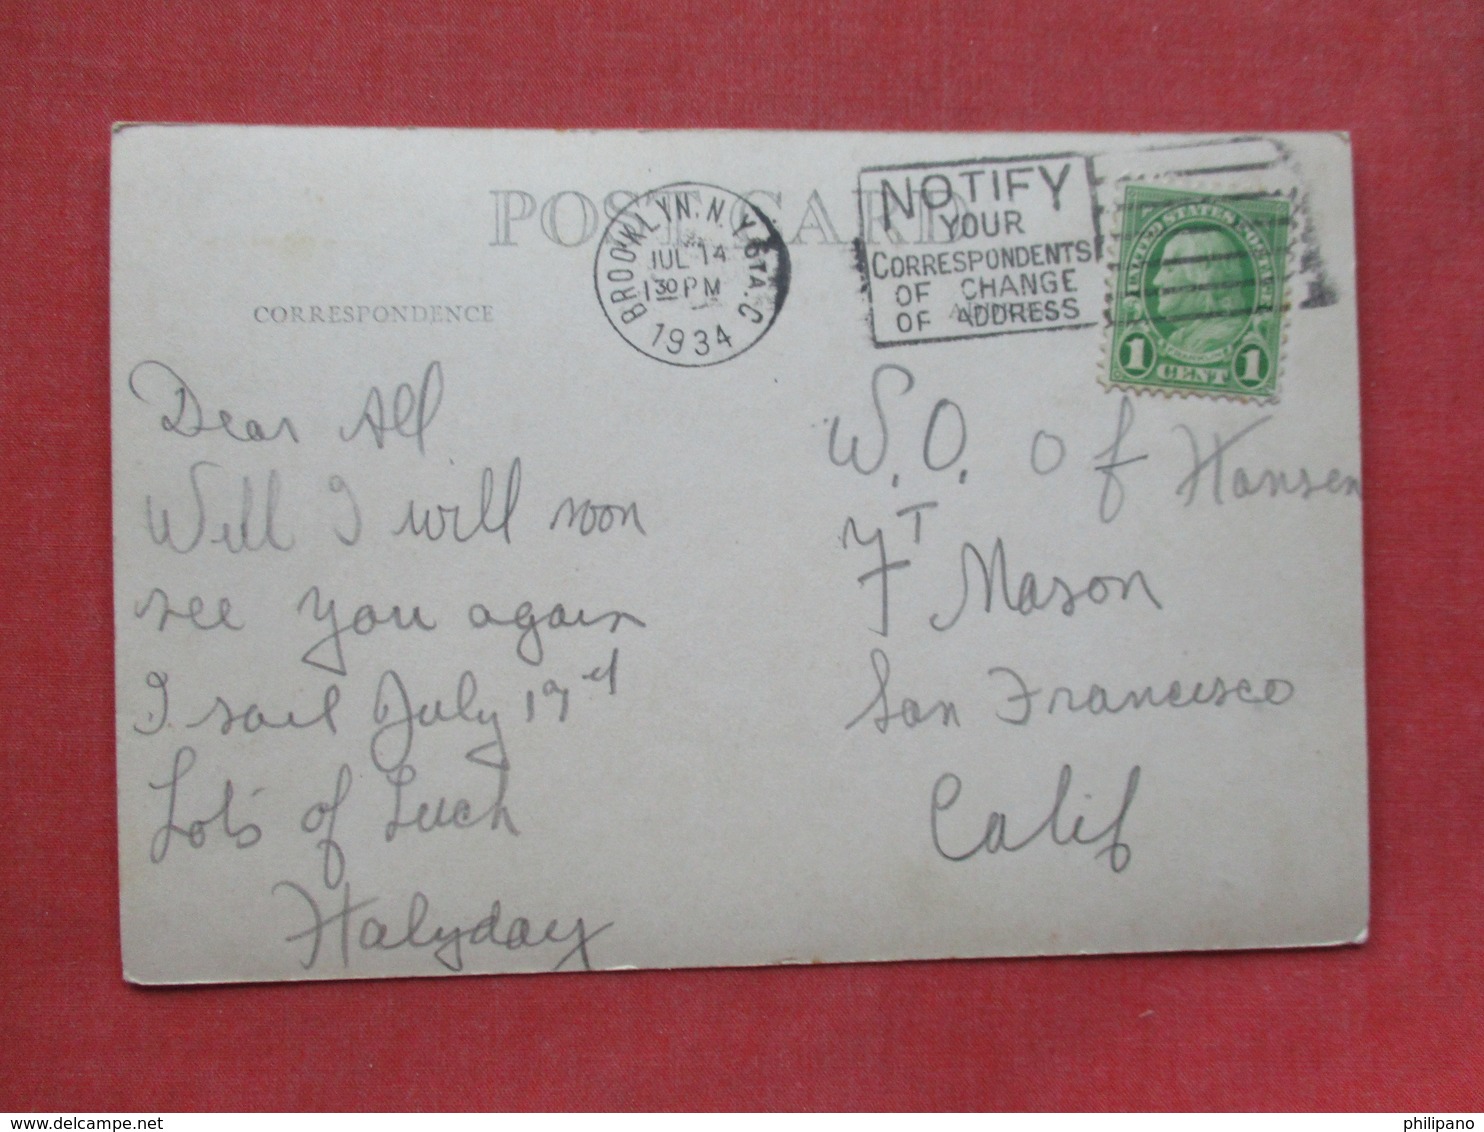 POST CARD
BROOKLYN, N.Y. STA. C
JUL 14
1 30 PM
1934
NOTIFY
YOUR
CORRESPONDENTS
OF CHANGE
OF ADDRESS
UNITED STATES POSTAGE
FRANKLIN
1 CENT 1
CORRESPONDENCE
Dear All
Will I will soon
see you again
I sail July
Lots of Luck
Halyday
W.O. of Hansen
FT Mason
San Francisco
Calif
philipano